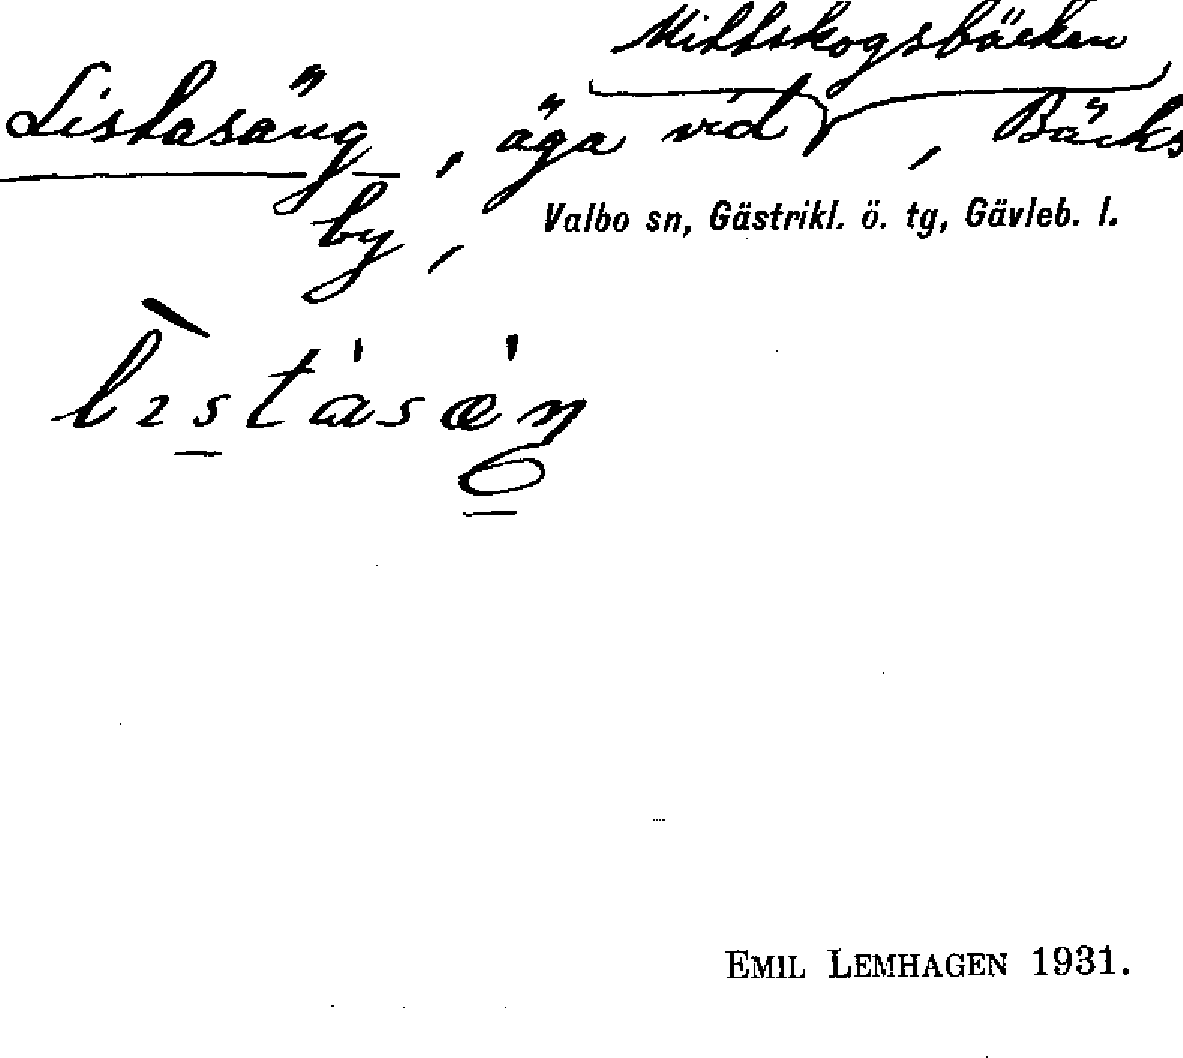 Mittskogsbäcken
Listasäng, äga vid , Bäcks
by,
Valbo sn, Gästrikl. ö. tg, Gävleb. l.
EMIL LEMHAGEN 1931.